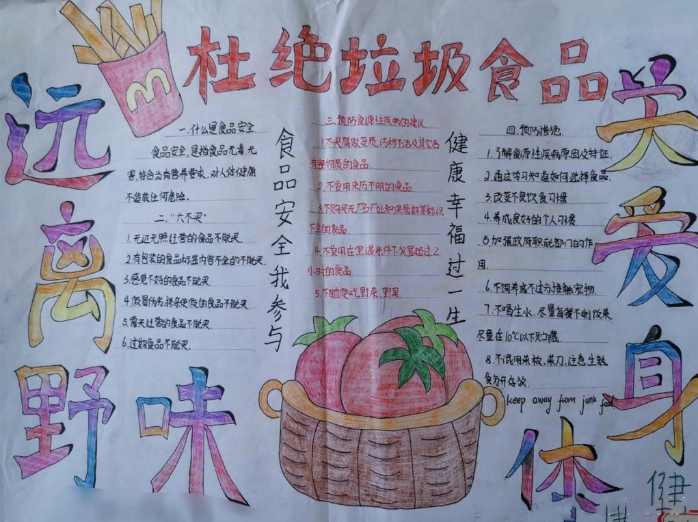 杜绝垃圾食品
远离野味
关爱身体健
一.什么是食品安全
食品安全,是指食品无毒.无
害,符合当有营养要求,对人体健康
不造成任何危害。
二."六不买"
1.无证无照经营的食品不能买.
2.有包装的食品标签内容不全的不能买.
3.感觉不好的食品不能买
4.假冒伪劣
的食品不能买.
5.露天经营的食品不能买.
6.过期食品不能买.
食品安全我参与
三.预防食源性疾病的建议
1.不买腐败变质
物质的食品
2.不食用来历不明的食品
全的食品
4.不食用在室温条件下放置超过2
小时的食品
5.不随便吃野菜,野果
健康幸福过一生
四.预防措施
1.了解食源性疾病原因及特征.
2.通过学习知道如何选择食品.
3.改变不良饮食习惯
4.养成良好的个人习惯
5.加强政府职能部门的作
用.
6.不饲养或不过分接触宠物.
7.不喝生水,尽量每餐不剩饭菜
尽量在10℃以下
8.不混用菜板,菜刀,注意生熟
食分开存放.
keep away from junk